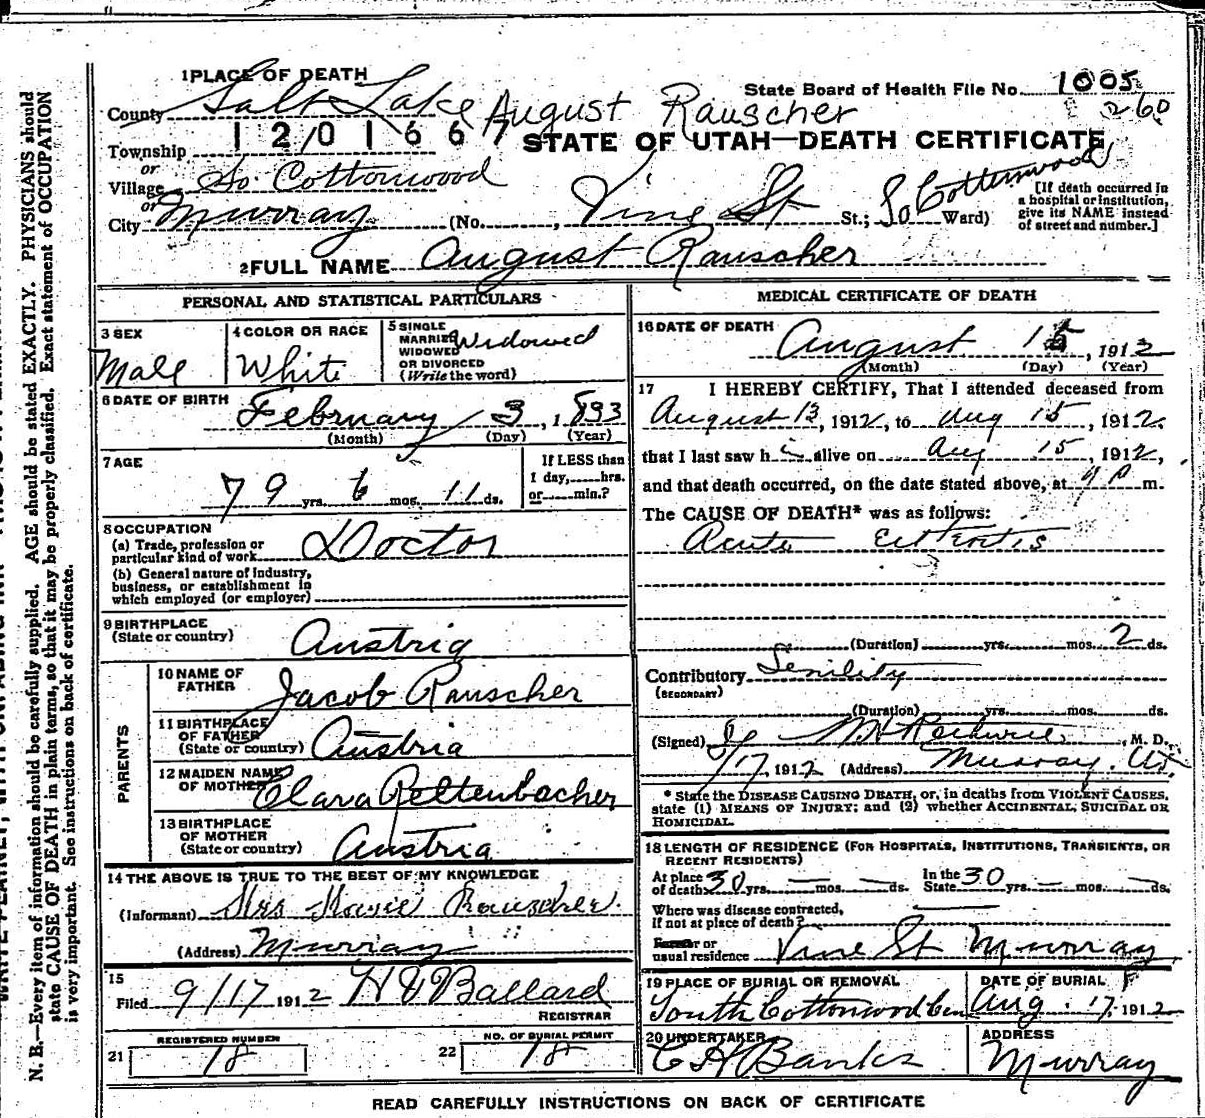 1 PLACE OF DEATH
County Salt Lake
August Rauscher
State Board of Health File No. 1005
260
1201667
STATE OF UTAH—DEATH CERTIFICATE
Township
or
Village So. Cottonwood
or
City Murray (No. , Vine St St.; So Cottonwood Ward)
[If death occurred in
a hospital or institution,
give its NAME instead
of street and number.]
2 FULL NAME August Rauscher
PERSONAL AND STATISTICAL PARTICULARS
3 SEX
Male
4 COLOR OR RACE
White
5 SINGLE
MARRIED
WIDOWED
OR DIVORCED
(Write the word)
Widowed
6 DATE OF BIRTH
February 3, 1833
(Month) (Day) (Year)
7 AGE
79 yrs. 6 mos. 11 ds.
If LESS than
1 day,......hrs.
or......min.?
8 OCCUPATION
(a) Trade, profession or
particular kind of work Doctor
(b) General nature of industry,
business, or establishment in
which employed (or employer)
9 BIRTHPLACE
(State or country) Austria
PARENTS
10 NAME OF
FATHER Jacob Rauscher
11 BIRTHPLACE
OF FATHER
(State or country) Austria
12 MAIDEN NAME
OF MOTHER Clara Reltenbacher
13 BIRTHPLACE
OF MOTHER
(State or country) Austria
14 THE ABOVE IS TRUE TO THE BEST OF MY KNOWLEDGE
(Informant) Mrs Rauscher.
(Address) Murray
15
Filed 9/17 1912 Ballard
REGISTRAR
21 REGISTERED NUMBER 18
22 NO. OF BURIAL PERMIT 18
MEDICAL CERTIFICATE OF DEATH
16 DATE OF DEATH
August 15, 1912
(Month) (Day) (Year)
17 I HEREBY CERTIFY, That I attended deceased from
August 13, 1912, to Aug 15, 1912.
that I last saw h i alive on Aug 15, 1912,
and that death occurred, on the date stated above, at 9 P m.
The CAUSE OF DEATH* was as follows:
Acute
(Duration) yrs. mos. 2 ds.
Contributory Senility
(SECONDARY)
(Duration) yrs. mos. ds.
(Signed) , M. D.
/17, 1912 (Address) Murray. Ut.
* State the DISEASE CAUSING DEATH, or, in deaths from VIOLENT CAUSES,
state (1) MEANS OF INJURY; and (2) whether ACCIDENTAL, SUICIDAL OR
HOMICIDAL.
18 LENGTH OF RESIDENCE (FOR HOSPITALS, INSTITUTIONS, TRANSIENTS, OR
RECENT RESIDENTS)
At place
of death 30 yrs. — mos. — ds.
In the
State 30 yrs. — mos. — ds.
Where was disease contracted,
if not at place of death?
Former or
usual residence Vine St Murray
19 PLACE OF BURIAL OR REMOVAL
South Cottonwood Cem
DATE OF BURIAL
Aug. 17, 1912
20 UNDERTAKER
Banks
ADDRESS
Murray
READ CAREFULLY INSTRUCTIONS ON BACK OF CERTIFICATE
N. B.—Every item of information should be carefully supplied. AGE should be stated EXACTLY. PHYSICIANS should
state CAUSE OF DEATH in plain terms, so that it may be properly classified. Exact statement of OCCUPATION
is very important. See instructions on back of certificate.